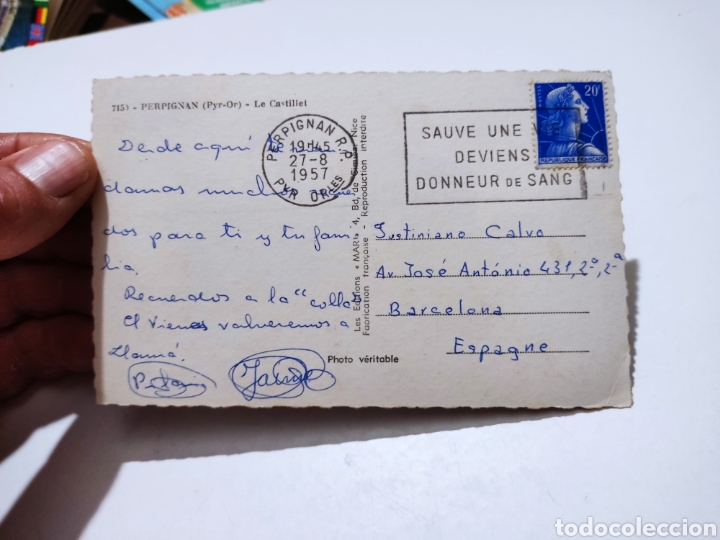 7153 - PERPIGNAN (Pyr-Or) - Le Castillet
PERPIGNAN R.P.
19H45
27-8
1957
PYR. ORLES
SAUVE UNE V
DEVIENS
DONNEUR DE SANG
POSTES
20F
REPUBLIQUE FRANCAISE
Desde aquí
damos
dos para ti y tu fami-
lia.
Recuerdos a la "colla"
El Vienes volveremos a
Jaime
Les Editions « MAR » 4, Bd. de Nice
Fabrication française - Reproduction interdite
Photo véritable
Justiniano Calvo
Av. José António 431, 2º, 2ª
Barcelona
Espagne
todocoleccion